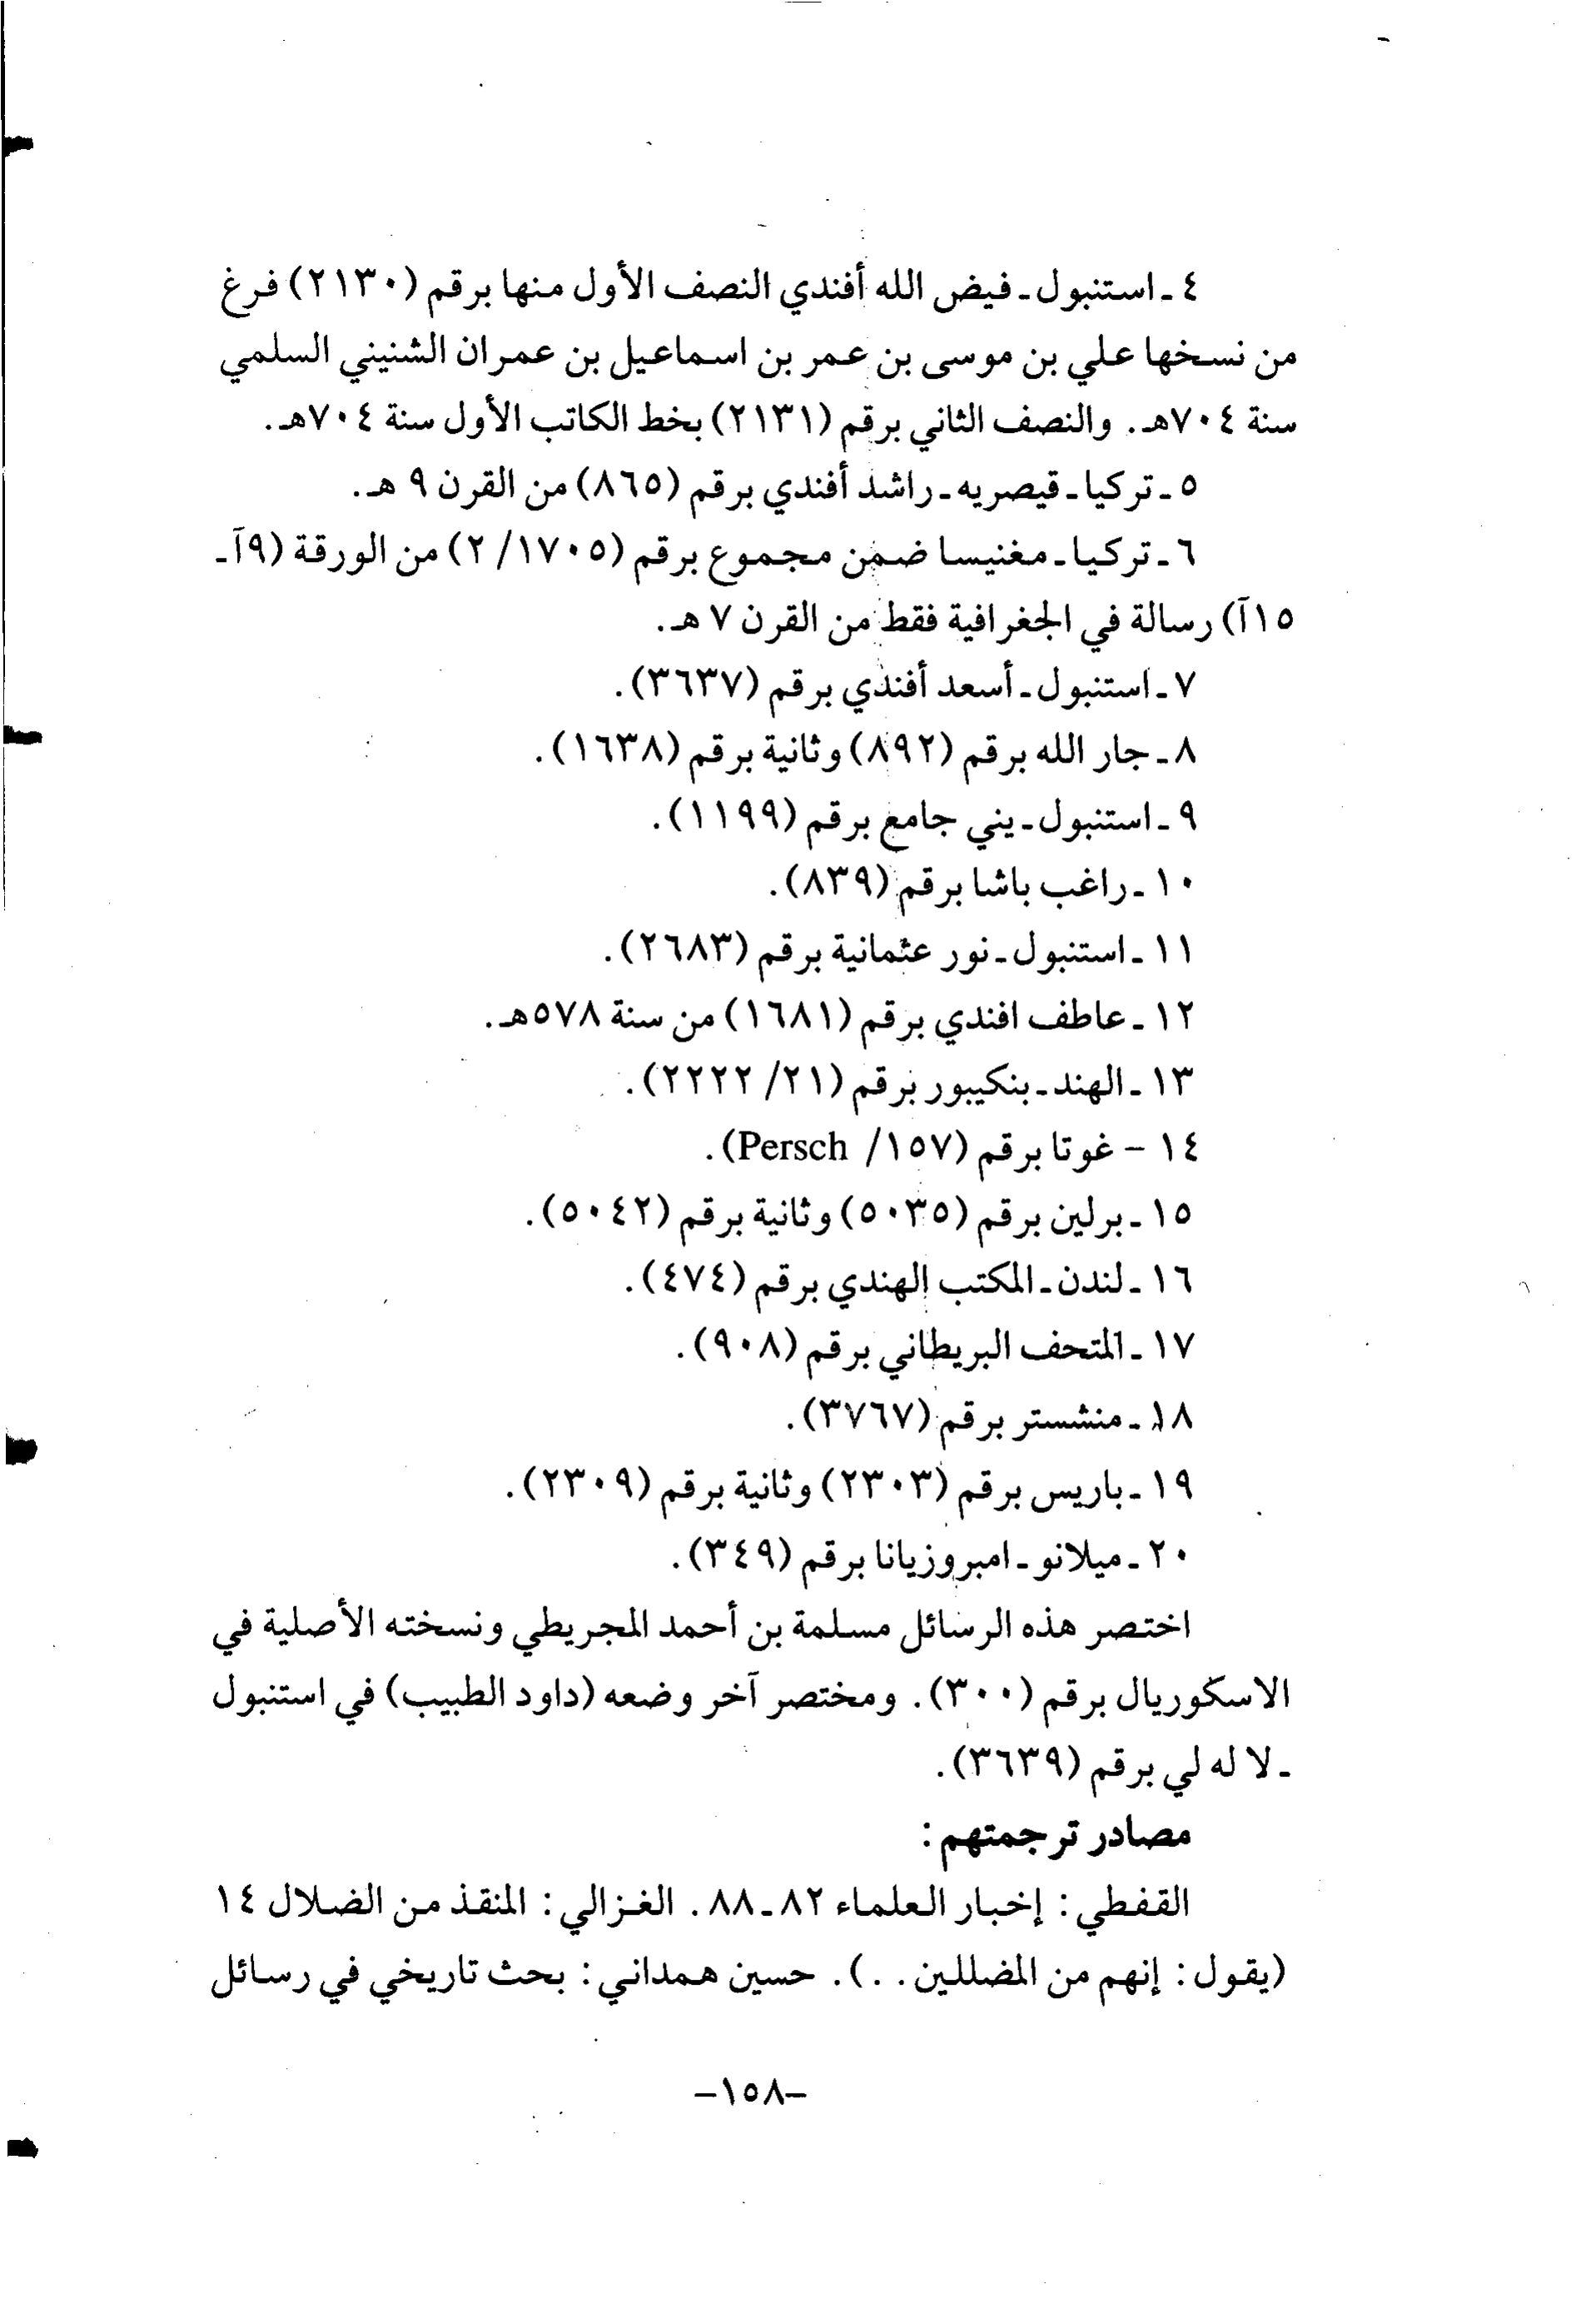 ٤ ـ استنبول ـ فيض الله أفندي النصف الأول منها برقم (٢١٣٠) فرغ
من نسخها علي بن موسى بن عمر بن اسماعيل بن عمران الشنيني السلمي
سنة ٧٠٤هـ. والنصف الثاني برقم (٢١٣١) بخط الكاتب الأول سنة ٧٠٤هـ.
٥ ـ تركيا ـ قيصريه ـ راشد أفندي برقم (٨٦٥) من القرن ٩ هـ.
٦ ـ تركيا ـ مغنيسا ضمن مجموع برقم (١٧٠٥/ ٢) من الورقة (٩آ ـ
١٥آ) رسالة في الجغرافية فقط من القرن ٧ هـ.
٧ ـ استنبول ـ أسعد أفندي برقم (٣٦٣٧).
٨ ـ جار الله برقم (٨٩٢) وثانية برقم (١٦٣٨).
٩ ـ استنبول ـ يني جامع برقم (١١٩٩).
١٠ ـ راغب باشا برقم (٨٣٩).
١١ ـ استنبول ـ نور عثمانية برقم (٢٦٨٣).
١٢ ـ عاطف افندي برقم (١٦٨١) من سنة ٥٧٨هـ.
١٣ ـ الهند ـ بنكيبور برقم (٢١/ ٢٢٢٢).
١٤ – غوتا برقم (١٥٧/ Persch).
١٥ ـ برلين برقم (٥٠٣٥) وثانية برقم (٥٠٤٢).
١٦ ـ لندن ـ المكتب الهندي برقم (٤٧٤).
١٧ ـ المتحف البريطاني برقم (٩٠٨).
١٨ ـ منشستر برقم (٣٧٦٧).
١٩ ـ باريس برقم (٢٣٠٣) وثانية برقم (٢٣٠٩).
٢٠ ـ ميلانو ـ امبروزيانا برقم (٣٤٩).
اختصر هذه الرسائل مسلمة بن أحمد المجريطي ونسخته الأصلية في
الاسكوريال برقم (٣٠٠). ومختصر آخر وضعه (داود الطبيب) في استنبول
ـ لا له لي برقم (٣٦٣٩).
مصادر ترجمتهم:
القفطي: إخبار العلماء ٨٢ ـ ٨٨. الغزالي: المنقذ من الضلال ١٤
(يقول: إنهم من المضللين . .). حسين همداني: بحث تاريخي في رسائل
–١٥٨–